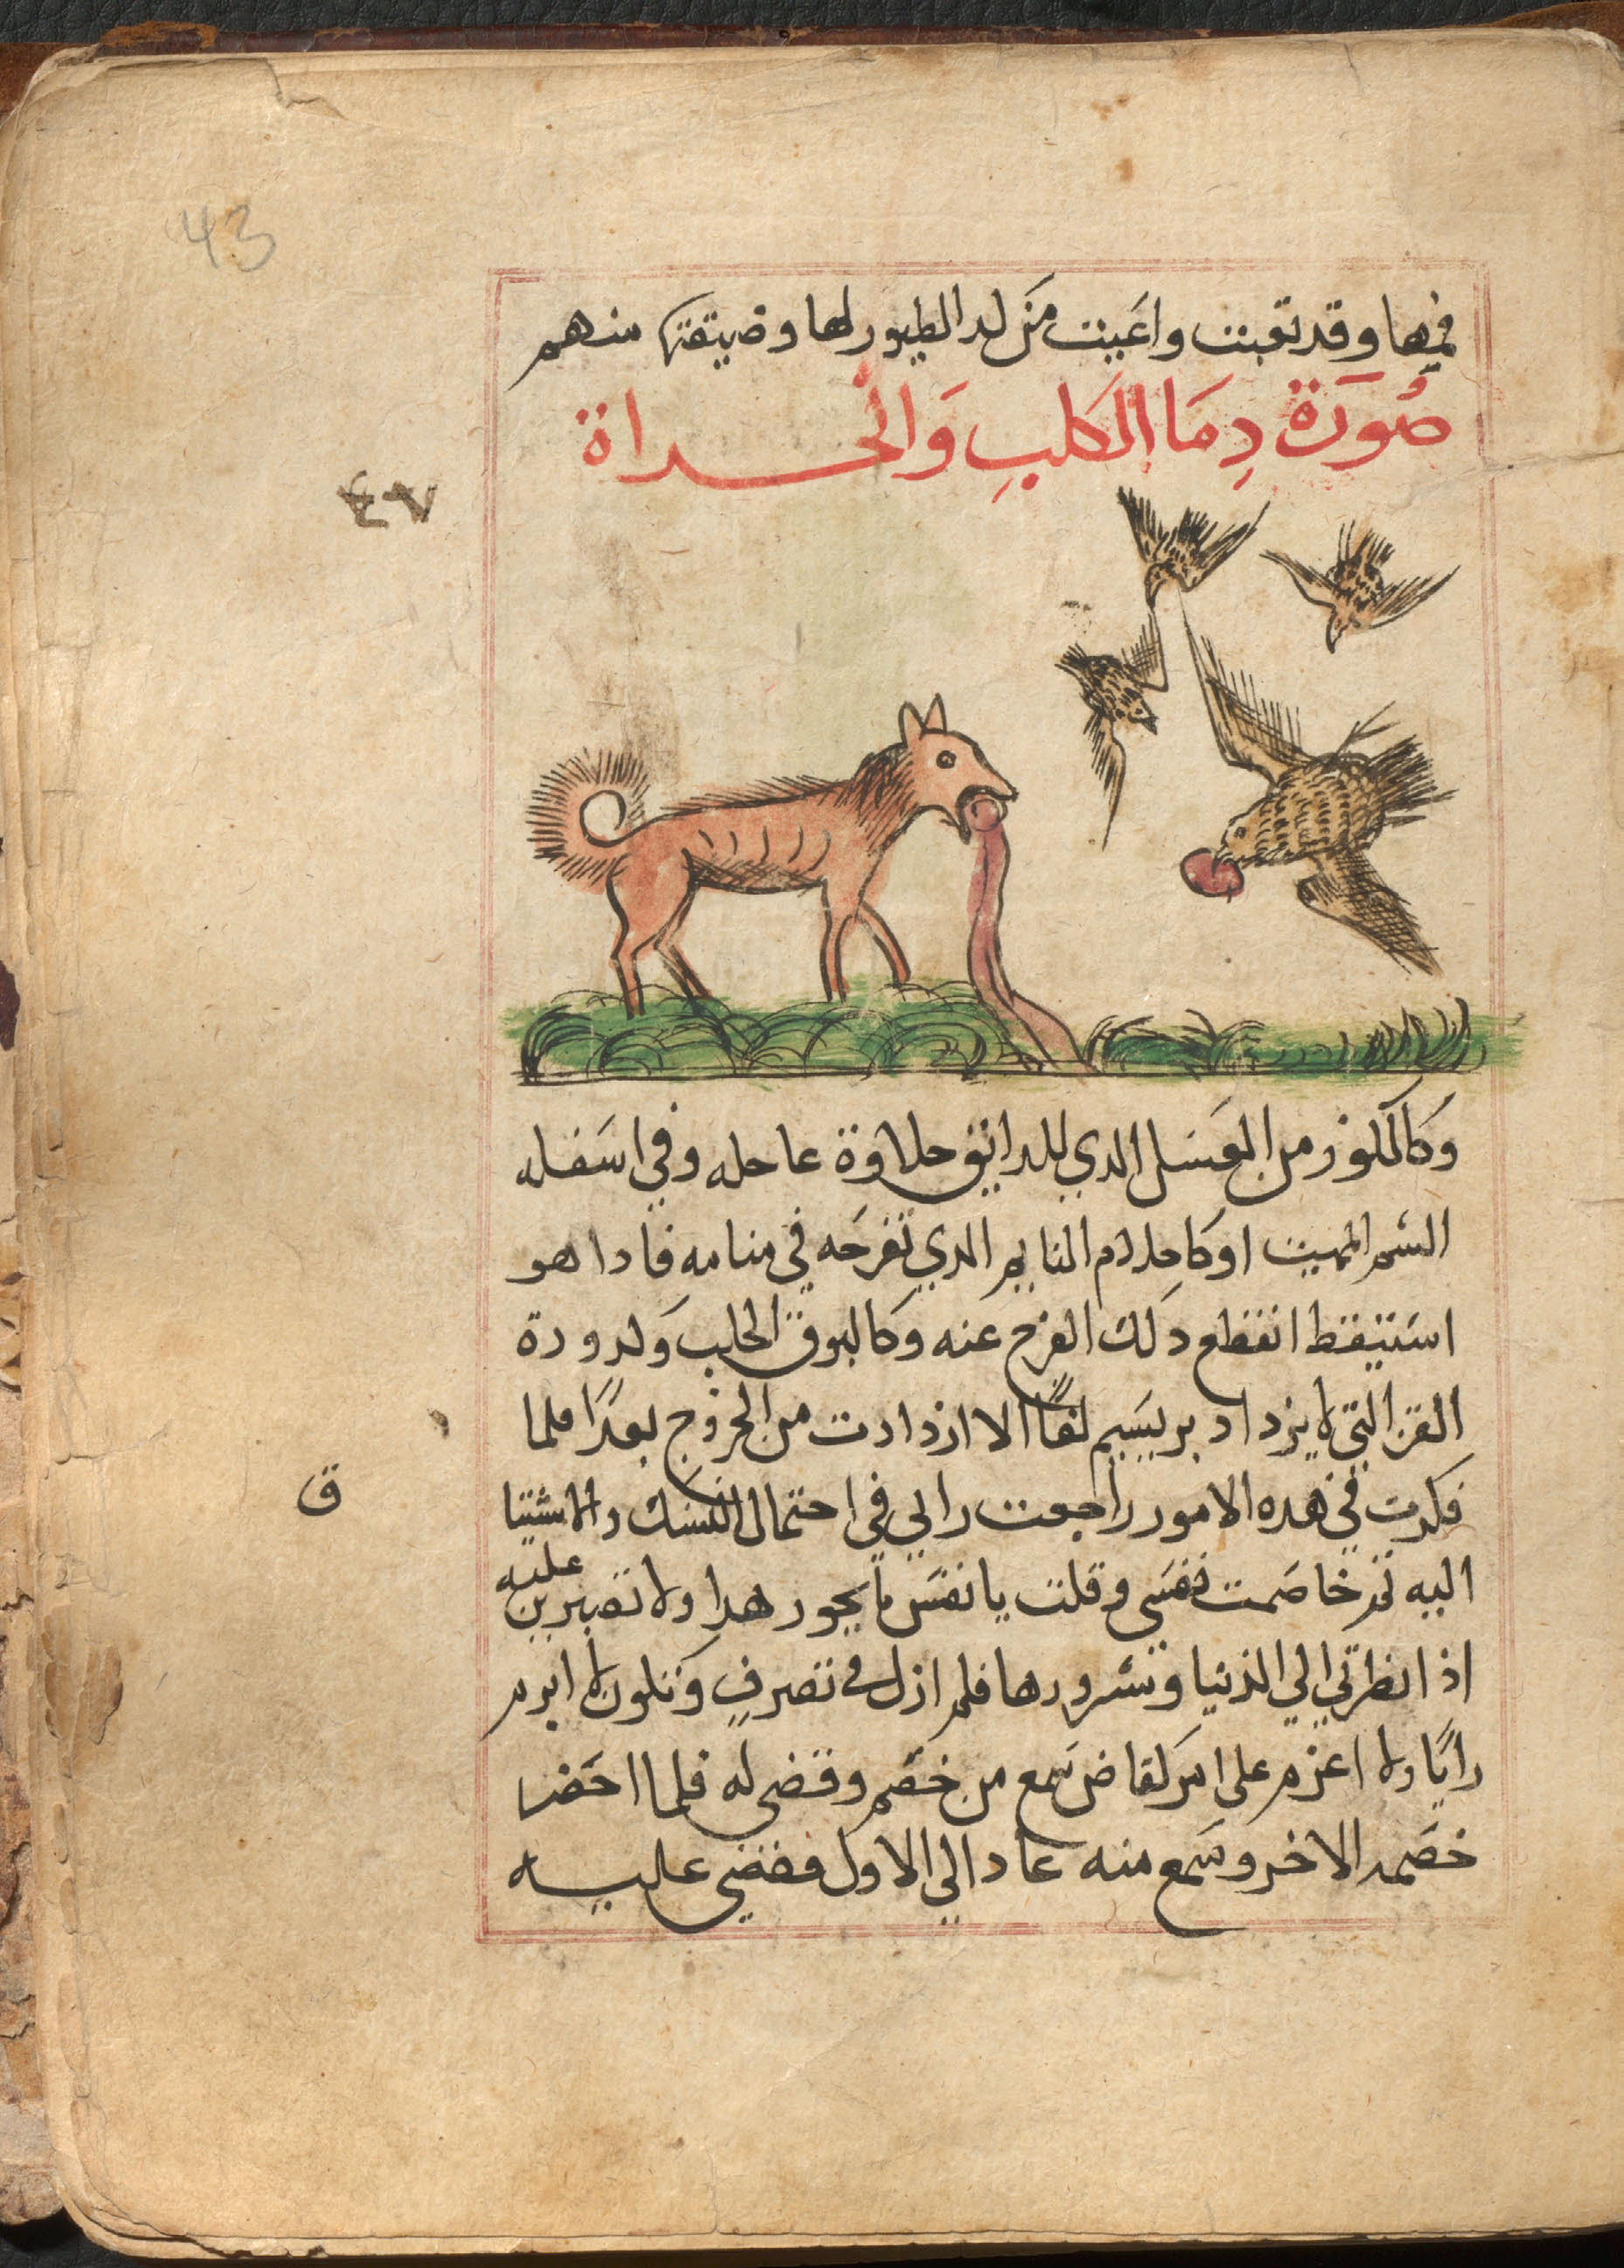 43
فيها وقد تعبت واعيت من لدا الطيور لها وضيقتها منهم
صُورَة دِمَا الكلبِ وَالحداة
٤٧
وَكالكوز من العَسَل الدي للدايق حلاوة عاجله وفي اسَفله
السَم المميت اوكاحلام النايم الدي تفرحَه في منامه فادا هو
استيقظ انقطع دلك الفرح عنه وكالبرق الحلب وَلدودة
القز التي لا يزداد بريسَيم لفًا الا ازدادت من الخروج بعدًا فلما
فكرت في هده الامور راجعت رايي في احتمال النسك والاشتيا
ق
اليه ثم خاصَمت نفسَي وقلت يا نفسَ ما يجوز هدا ولا تصبرين
عليه
اذا نظرتي الي الدنيا وشرورها فلم ازل في تصرفٍ وَتلون لا ابرم
رايًا ولا اعزم على امرَ لقاض سَمع من خصَم وقضى له فلما احَضر
خصَمه الاخر وسَمع منه عاد الي الاول فقضي عليه